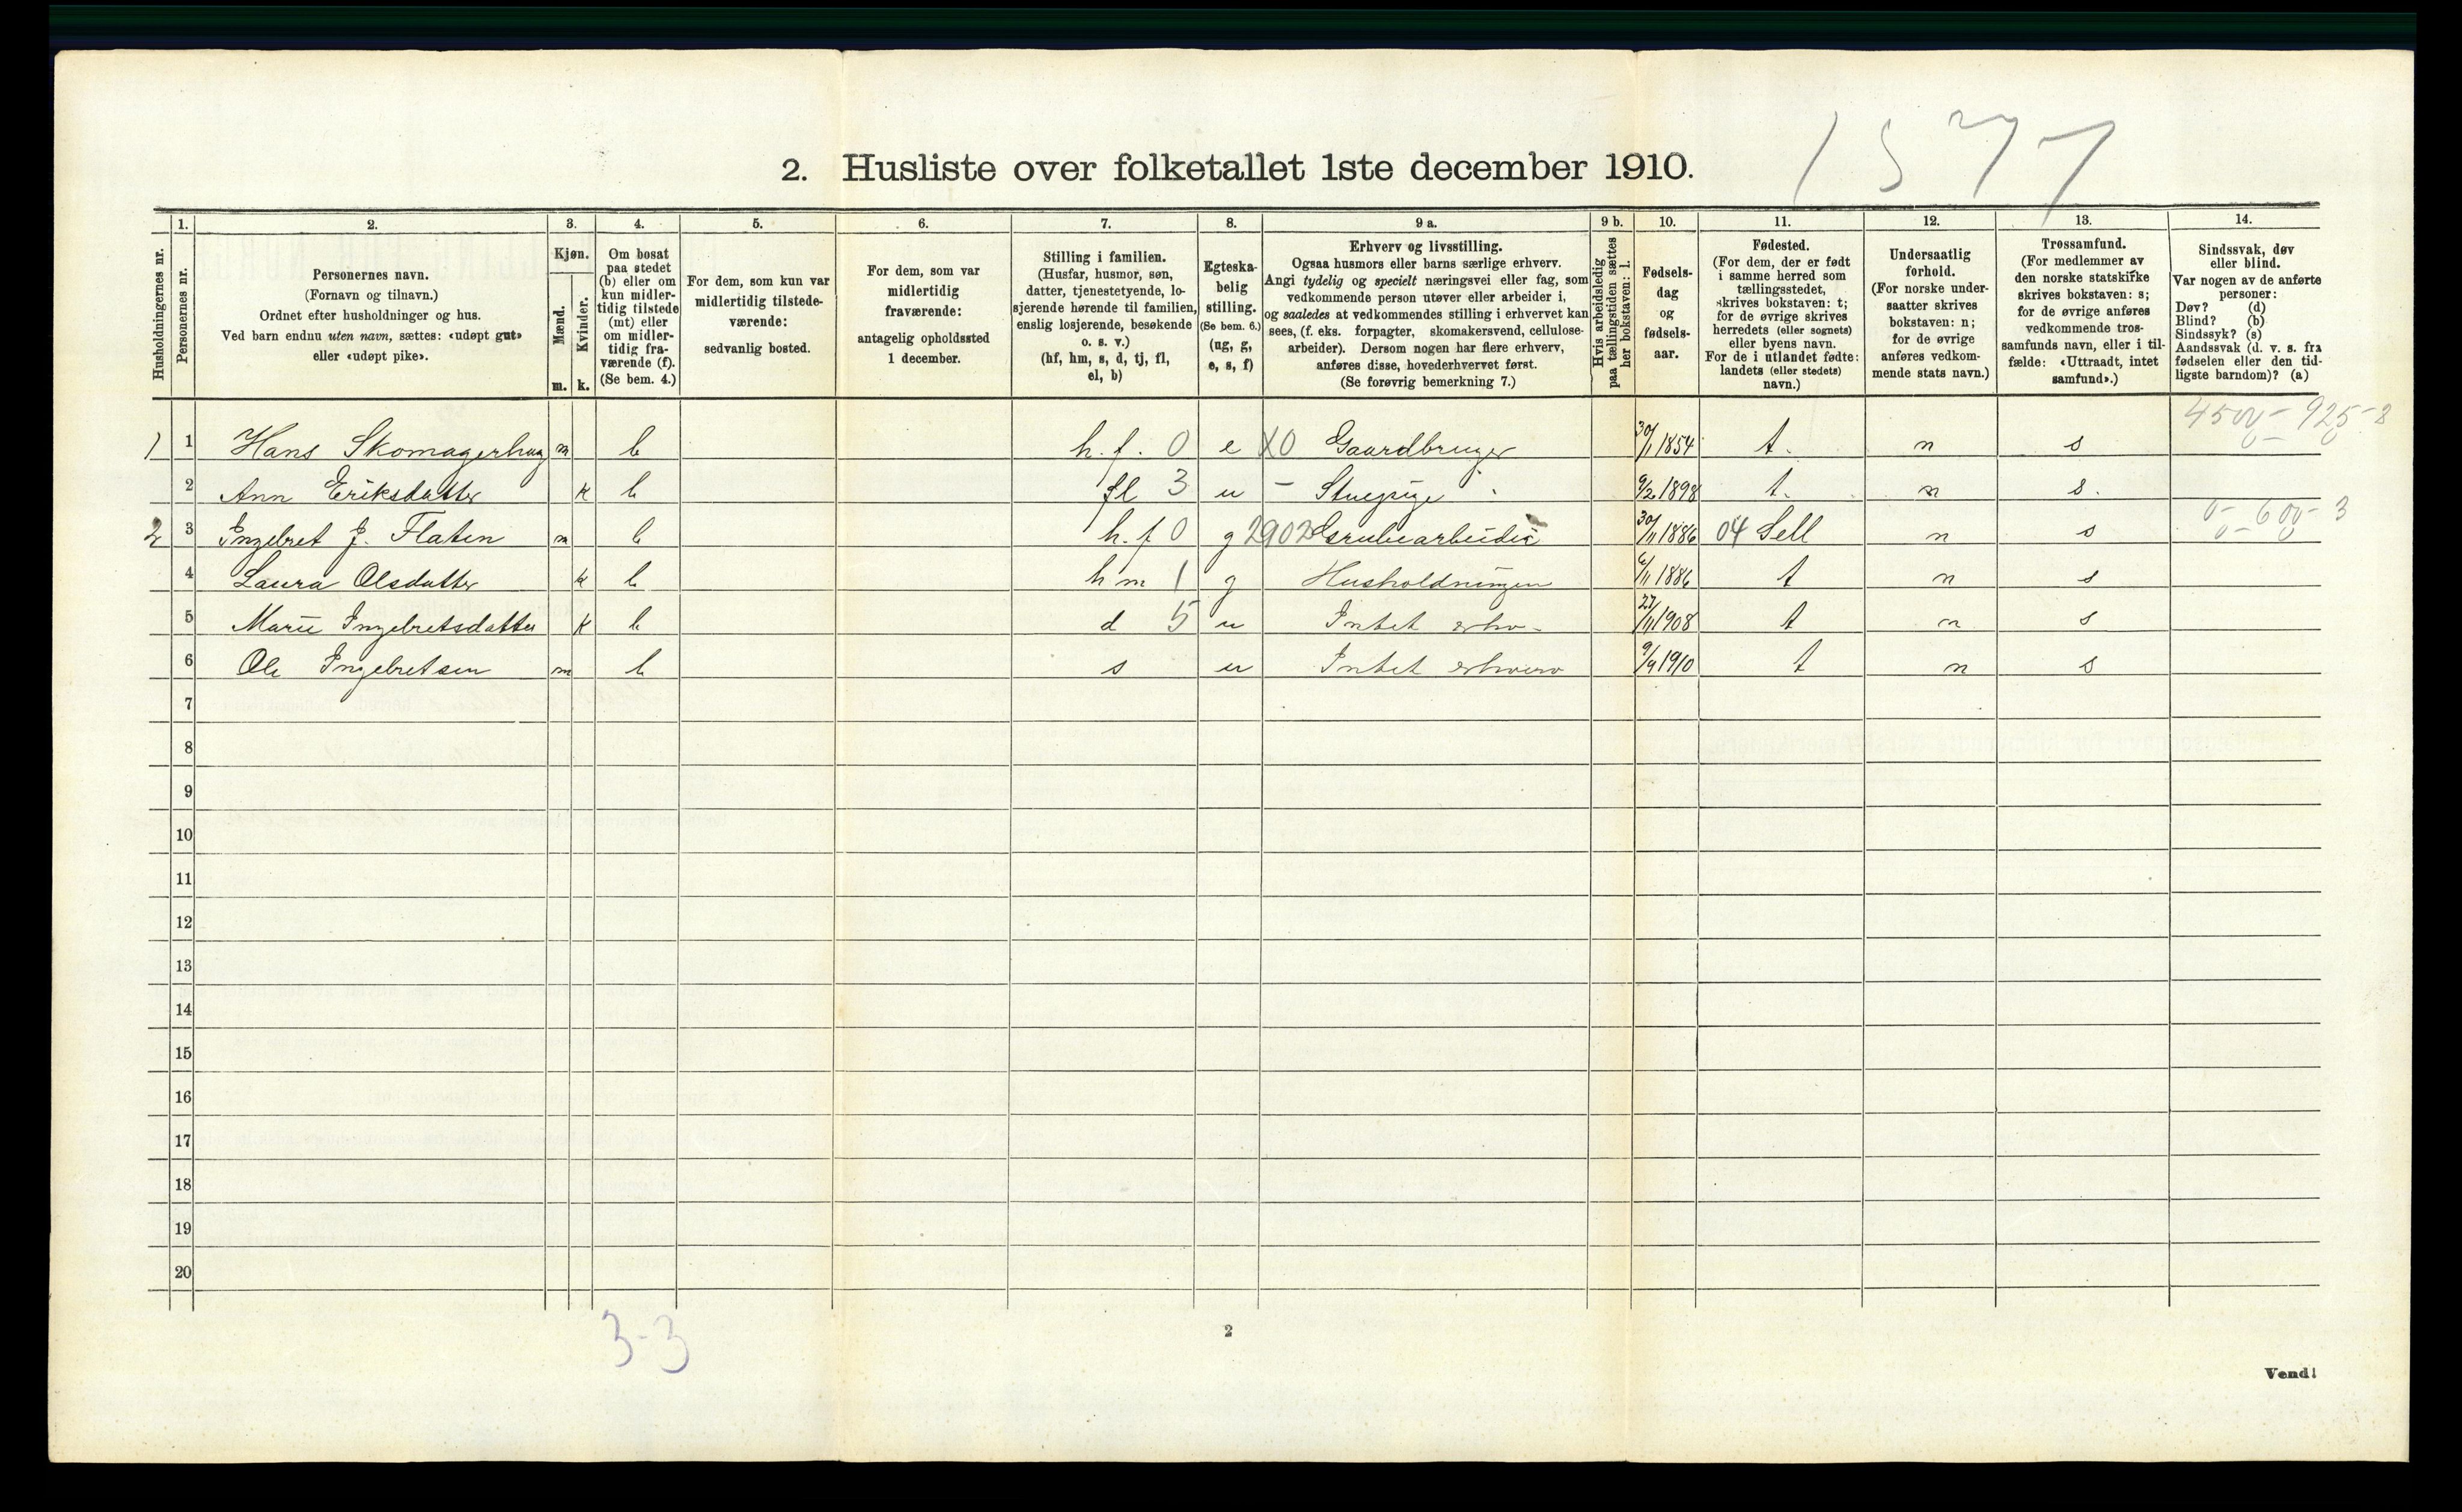 1577
2. Husliste over folketallet 1ste december 1910.
Husholdningernes nr.
1.
Personernes nr.
2.
Personernes navn.
(Fornavn og tilnavn.)
Ordnet efter husholdninger og hus.
Ved barn endnu uten navn, sættes: «udøpt gut»
eller «udøpt pike».
3.
Kjøn.
Mænd.
Kvinder.
m. k.
4.
Om bosat
paa stedet
(b) eller om
kun midler-
tidig tilstede
(mt) eller
om midler-
tidig fra-
værende (f).
(Se bem. 4.)
5.
For dem, som kun var
midlertidig tilstede-
værende:
sedvanlig bosted.
6.
For dem, som var
midlertidig
fraværende:
antagelig opholdssted
1 december.
7.
Stilling i familien.
(Husfar, husmor, søn,
datter, tjenestetyende, lo-
sjerende hørende til familien,
enslig losjerende, besøkende
o. s. v.)
(hf, hm, s, d, tj, fl,
el, b)
8.
Egteska-
belig
stilling.
(Se bem. 6.)
(ug, g,
e, s, f)
9 a.
Erhverv og livsstilling.
Ogsaa husmors eller barns særlige erhverv.
Angi tydelig og specielt næringsvei eller fag, som
vedkommende person utøver eller arbeider i,
og saaledes at vedkommendes stilling i erhvervet kan
sees, (f. eks. forpagter, skomakersvend, cellulose-
arbeider). Dersom nogen har flere erhverv,
anføres disse, hovederhvervet først.
(Se forøvrig bemerkning 7.)
9 b.
Hvis arbeidsledig
paa tællingstiden sættes
her bokstaven: l.
10.
Fødsels-
dag
og
fødsels-
aar.
11.
Fødested.
(For dem, der er født
i samme herred som
tællingsstedet,
skrives bokstaven: t;
for de øvrige skrives
herredets (eller sognets)
eller byens navn.
For de i utlandet fødte:
landets (eller stedets)
navn.)
12.
Undersaatlig
forhold.
(For norske under-
saatter skrives
bokstaven: n;
for de øvrige
anføres vedkom-
mende stats navn.)
13.
Trossamfund.
(For medlemmer av
den norske statskirke
skrives bokstaven: s;
for de øvrige anføres
vedkommende tros-
samfunds navn, eller i til-
fælde: «Uttraadt, intet
samfund».)
14.
Sindssvak, døv
eller blind.
Var nogen av de anførte
personer:
Døv? (d)
Blind? (b)
Sindssyk? (s)
Aandssvak (d. v. s. fra
fødselen eller den tid-
ligste barndom)? (a)
1 1 Hans Skomagerhaug m b h. f. 0 e X0 Gaardbruger 30/1 1854 t. n s 4500 - 925-8
2 Ann Eriksdatter k b fl 3 u - Stuepige 9/2 1898 t. n s.
2 3 Ingebret J. Flaten m b h. f 0 g 2902 Grubearbeider 30/11 1886 04 Sell n s 0- 600- 3
4 Laura Olsdatter k b hm 1 g Husholdningen 6/11 1886 t n s
5 Marie Ingebretsdatter k b d 5 u Intet erhv- 27/11 1908 t n s
6 Ole Ingebretsen m b s u Intet erhverv 9/9 1910 t n s
7
8
9
10
11
12
13
14
15
16
17
18
19
20
3-3
2
Vend!